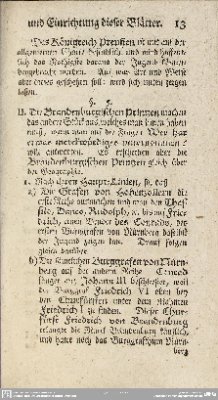 und Einrichtung dieser Blätter. 13
Das Königreich Preussen ist mit auf der
allgemeinen
das Nöthigste davon der Jugend
beygebracht werden. Auf was Art und Weise
aber dieses geschehen soll, wird sich unten zeigen
lassen.
§.
II. Die Brandenburgischen Printzen machen
das andere Stück aus, welches man
muß, wenn man auf die Frage: Wer hat
etwas merckwürdiges
will, antworten. Es erscheinen aber die
Brandenburgischen Printzen gleich über
die Geographie.
1. Nach ihren Haupt-Linien, so, daß
a) Die Grafen von Hohenzollern die
erste Reihe ausmachen und man den Thas-
silo, Danco, Rudolph, 2. bis auf Frie-
drich, den Vater des Conrads, der
ersten Burggrafen von Nürnberg
der Jugend zeigen kan. Drauf folgen
gleich
b) Die sämtlichen Burggrafen von Nürn-
berg auf der andern Reihe. Conrad
fänget an, Johann III beschliesset, weil
der Burggraf Friedrich VI eben bey
den Churfürsten unter dem Nahmen
Friedrich I zu finden. Dieser Chur-
fürst Friedrich von Brandenburg
erlangte die Marck Brandenburg käuflich,
und hatte noch das Burggrafthum Nürn-
berg